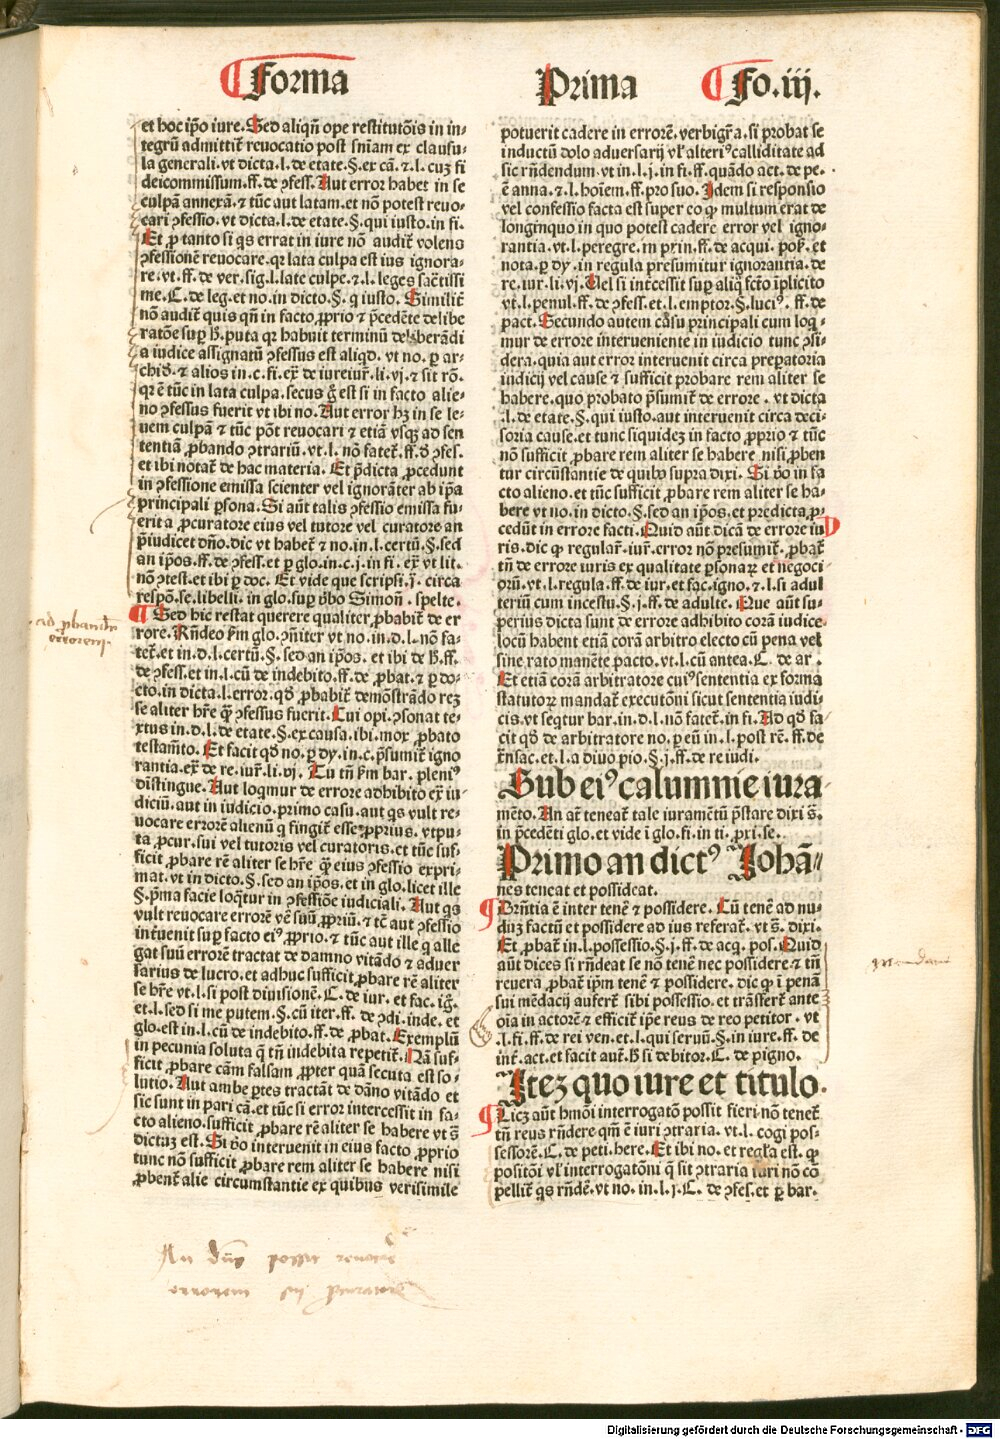 Forma
Prima
Fo.iij.
et hoc ip̄o iure. Sed aliqn̄ ope restitutōis in in-
tegrū admittit̄ reuocatio post sn̄iam ex clausu-
la generali. vt dicta .l. de etate. §. ex cā. ⁊ .l. cuȝ fi
deicommissum. ff. de ꝯfess. Aut error habet in se
culpā annexā. ⁊ tūc aut latam. et nō potest reuo-
cari ꝯfessio. vt dicta .l. de etate. §. qui iusto. in fi.
Et ꝓ tanto si qs errat in iure nō audit̄ volens
ꝯfessionē reuocare. qr lata culpa est ius ignora-
re. vt .ff. de ver. sig. l. late culpe. ⁊ .l. leges sac̄tissi
me. C. de leg. et no. in dicto. §. q iusto. Similit̄
nō audit̄ quis qn̄ in facto ꝓprio ⁊ p̄cedēte delibe
ratōe suꝑ h̄. puta qr habuit terminū deliberādi
a iudice assignatū ꝯfessus est aliqd. vt no. ꝑ ar-
chid̄. ⁊ alios in .c. fi. ex̄ de iureiur̄. li. vj. ⁊ sit rō.
qr ē tūc in lata culpa. secus g̊ est si in facto alie-
no ꝯfessus fuerit vt ibi no. Aut error hȝ in se le-
uem culpā ⁊ tūc pōt reuocari ⁊ etiā vsqȝ ad sen
tentiā ꝓbando ꝯtrariū. vt .l. nō fatet̄. ff. d̄ ꝯfes.
et ibi notat̄ de hac materia. Et p̄dicta ꝓcedunt
in ꝯfessione emissa scienter vel ignorāter ab ip̄a
principali ꝑsona. Si aūt talis ꝯfessio emissa fu-
erit a ꝓcuratore eius vel tutore vel curatore an
p̄iudicet dn̄o. dic vt habet̄ ⁊ no. in .l. certū. §. sed
an ip̄os. ff. de ꝯfess. et ꝑ glo. in .c. j. in fi. ex̄ vt lit.
nō ꝯtest. et ibi ꝑ doc. Et vide que scripsi .j. circa
respō. se. libelli. in glo. suꝑ ꝟbo Simoni. spelte.
Sed hic restat querere qualiter ꝓbabit̄ de er
rore. Rn̄deo ẜm glo. ꝯn̄iter vt no. in .d. l. nō fa-
tet̄. et in .d. l. certū. §. sed an ip̄os. et ibi de h̄. ff.
de ꝯfess. et in .l. cū de indebito. ff. de ꝓbat. ⁊ ꝑ do-
cto. in dicta .l. error. qd̄ ꝓbabit̄ demōstrādo reȝ
se aliter hr̄e q̄ ꝯfessus fuerit. Cui opi. ꝯsonat te-
xtus in .d. l. de etate. §. ex causa. ibi. mox ꝓbato
testam̄to. Et facit qd̄ no. ꝑ dy. in .c. p̄sumit̄ igno
rantia. ex̄ de re. iur̄. li. vj. Tu tn̄ ẜm bar. pleni⁹
distingue. Aut loqmur de errore adhibito ex̄ iu-
diciū. aut in iudicio. primo casu. aut qs vult re-
uocare errorē alienū q̄ fingit esse ꝓprius. vtpu-
ta ꝓcur. sui vel tutoris vel curatoris. et tūc suf-
ficit ꝓbare rē aliter se hr̄e q̄ eius ꝯfessio expri-
mat. vt in dicto. §. sed an ip̄os. et in glo. licet ille
§. pma facie loq̄tur in ꝯfessiōe iudiciali. Aut qs
vult reuocare errorē vē suū ꝓpriū. ⁊ tc̄ aut ꝯfessio
int̄uenit suꝑ facto ei⁹ ꝓprio. ⁊ tūc aut ille q alle
gat suū errorē tractat de damno vitādo ⁊ aduer
sarius de lucro. et adhuc sufficit ꝓbare rē aliter
se hr̄e vt .l. si post diuisionē. C. de iur. et fac. iḡ.
et .l. sed si me putem. §. cū iter. ff. de ꝯdi. inde. et
glo. est in .l. cū de indebito. ff. de ꝓbat. Exemplū
in pecunia soluta q̄ tn̄ indebita repetit̄. Nā suf-
ficit ꝓbare cām falsam ꝓpter quā secuta est so-
lutio. Aut ambe ꝑtes tractāt de dāno vitādo et
sic sunt in pari cā. et tūc si error intercessit in fa-
cto alieno. sufficit ꝓbare rē aliter se habere vt s̄
dictuȝ est. Si ꝟo interuenit in eius facto ꝓprio
tunc nō sufficit ꝓbare rem aliter se habere nisi
ꝓbent̄ alie circumstantie ex quibus verisimile
potuerit cadere in errorē. verbigr̄a. si probat se
inductū dolo aduersarij vl̄ alteri⁹ calliditate ad
sic rn̄dendum vt in .l. j. in fi. ff. quādo act. de pe.
ē anna. ⁊ .l. hoīem. ff. pro suo. Idem si responsio
vel confessio facta est super eo qꝫ multum erat de
longinquo in quo potest cadere error vel igno-
rantia. vt .l. peregre. in prin. ff. de acqui. pos. et
nota. ꝑ dy. in regula presumitur ignorantia. de
re. iur. li. vj. Uel si int̄cessit suꝑ aliq̄ fc̄to īplicito
vt .l. penul. ff. de ꝯfess. et .l. emptor. §. luci⁹. ff. de
pact. Secundo autem casu principali cum loq-
mur de errore interueniente in iudicio tunc ꝯsi-
dera. quia aut error interuenit circa preparatoria
iudicij vel cause ⁊ sufficit probare rem aliter se
habere. quo probato p̄sumit̄ de errore. vt dicta
.l. de etate. §. qui iusto. aut interuenit circa deci-
soria cause. et tunc siquideȝ in facto ꝓprio ⁊ tūc
nō sufficit ꝓbare rem aliter se habere nisi ꝓben
tur circūstantie de quibꝰ supra dixi. Si ꝟo in fa
cto alieno. et tūc sufficit ꝓbare rem aliter se ha-
bere vt no. in dicto. §. sed an ip̄os. et predicta ꝓ-
cedūt in errore facti. Quid aūt dicā de errore iu
ris. dic qꝫ regular̄. iur̄. error nō presumit̄. ꝓbat̄
tn̄ de errore iuris ex qualitate ꝑsonaꝝ et negoci
orū. vt .l. regula. ff. de iur. et fac. igno. ⁊ .l. si adul
teriū cum incestu. §. j. ff. de adulte. Que aūt su-
perius dicta sunt de errore adhibito corā iudice
locū habent etiā corā arbitro electo cū pena vel
sine rato manēte pacto. vt .l. cū antea. C. de ar.
Et etiā corā arbitratore cui⁹ sententia ex forma
statutoꝝ mandat̄ executōni sicut sententia iudi-
cis. vt seqtur bar. in .d. l. nō fatet̄. in fi. Ad qd̄ fa-
cit qd̄ de arbitratore no. ꝑ eū in .l. post rē. ff. de
tr̄nsac. et .l. a diuo pio. §. j. ff. de re iudi.
Sub ei⁹ calumnie iura
mēto. An at̄ teneat̄ tale iuramētū p̄stare dixi s̄.
in p̄cedēti glo. et vide ī glo. fi. in ti. ꝓxi. se.
Primo an dict⁹ Johā-
nes teneat et possideat.
Drn̄tia ē inter tenē ⁊ possidere. Cū tenē ad nu-
duȝ factū et possidere ad ius referat̄. vt s̄. dixi.
Et ꝓbat̄ in .l. possessio. §. j. ff. de acq. pos. Quid
aūt dices si rn̄deat se nō tenē nec possidere ⁊ tn̄
reuera ꝓbat̄ ip̄m tenē ⁊ possidere. dic qꝫ ī penā
sui mēdacij aufert̄ sibi possessio. et trāsfert̄ ante
oīa in actorē ⁊ efficit̄ ip̄e reus de reo petitor. vt
.l. fi. ff. de rei ven. et .l. qui seruū. §. in iure. ff. de
int̄. act. et facit aut̄. h̄ si debitor. C. de pigno.
Iteȝ quo iure et titulo.
Liceȝ aūt hmōi interrogatō possit fieri nō tenet̄
tn̄ reus rn̄dere qm̄ ē iuri ꝯtraria. vt .l. cogi pos-
sessorē. C. de peti. here. Et ibi no. et regl̄a est. qꝫ
positōni vl̄ interrogatōni q̄ sit ꝯtraria iuri nō cō
pellit̄ qs rn̄dē. vt no. in .l. j. C. de ꝯfes. et ꝑ bar.
ad ꝓbandū
errorem.
An dn̄s possit reuocare
errorem sui ꝓcuratoris
Digitalisierung gefördert durch die Deutsche Forschungsgemeinschaft - DFG